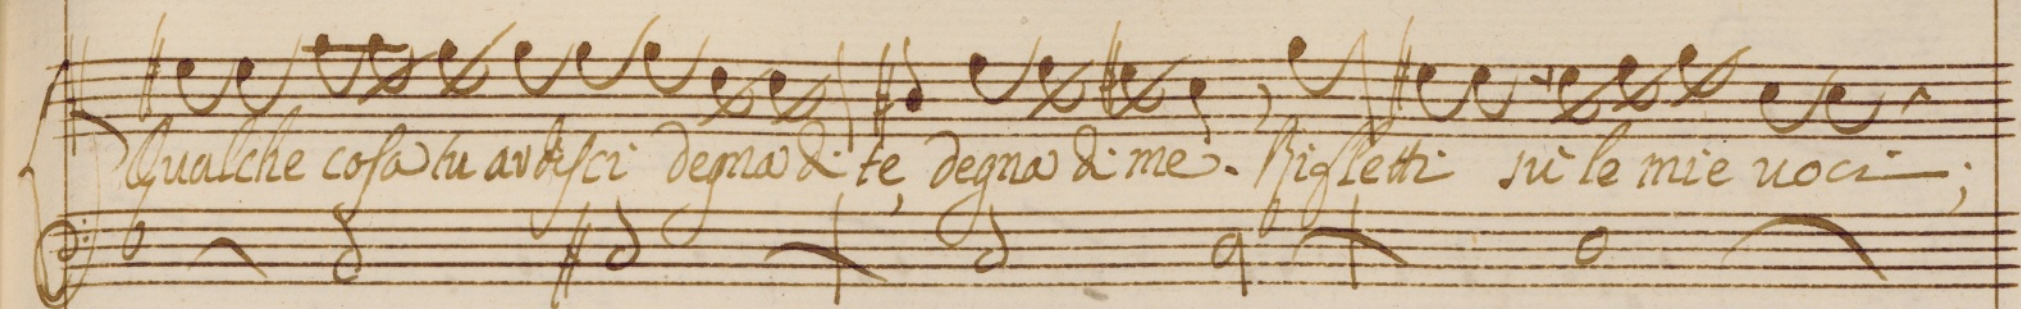 Qualche cosa tu ardisci degna di te, degna di me. Rifletti sù le mie voci;